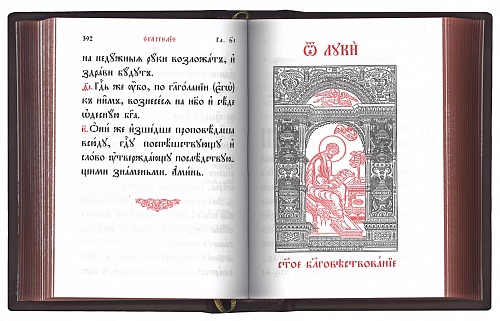 392 Єѵⷢ҇аггелїе Гл. s҃і
на недꙋжныѧ рꙋки возложатъ, и҆
здрави бꙋдꙋтъ.
Гдⷭ҇ь же ᲂу҆бѡ, по гл҃голанїи (є҆гѡ̀)
къ ни̑мъ, вознесе́сѧ на нб҃о и҆ сѣ́де
ѡ҆деснꙋ́ю бг҃а.
к҃. Ѻ҆ни́ же и҆зше́дше проповѣ́даша
всю́дꙋ, гдⷭ҇ꙋ поспѣшствꙋ́ющꙋ и҆
сло́во ᲂу҆твержда́ющꙋ послѣ́дствꙋ-
ющими зна́меньми. А҆ми́нь.
Ѿ Лꙋкѝ
ст҃о́е бл҃говѣствова́нїе